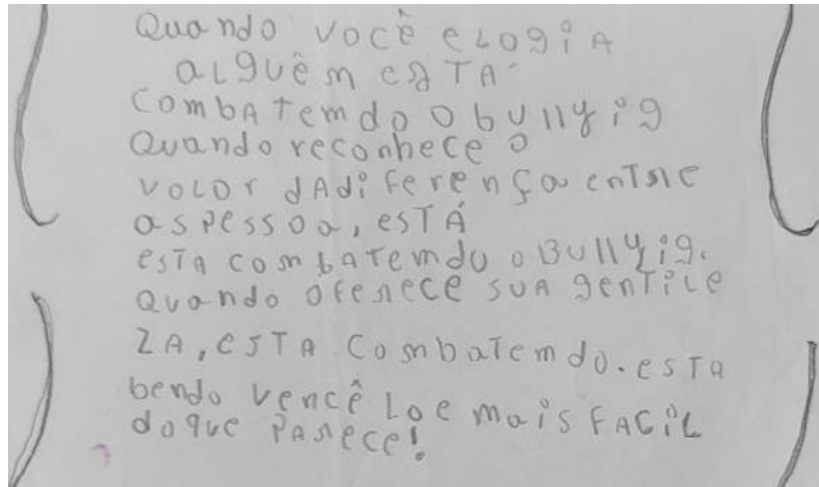 Quando você eLogiA
aLguêm esTÁ
combATemdo o bullyig
Quando reconhece o
volor dAdiferença entre
aspessoa, esTÁ
esTA combaTemdo o Bullyig.
Quando oferece suA genTiLe
ZA, esTA combaTemdo. esTA
bendo vencê Loe mais FACiL
doque PArece!